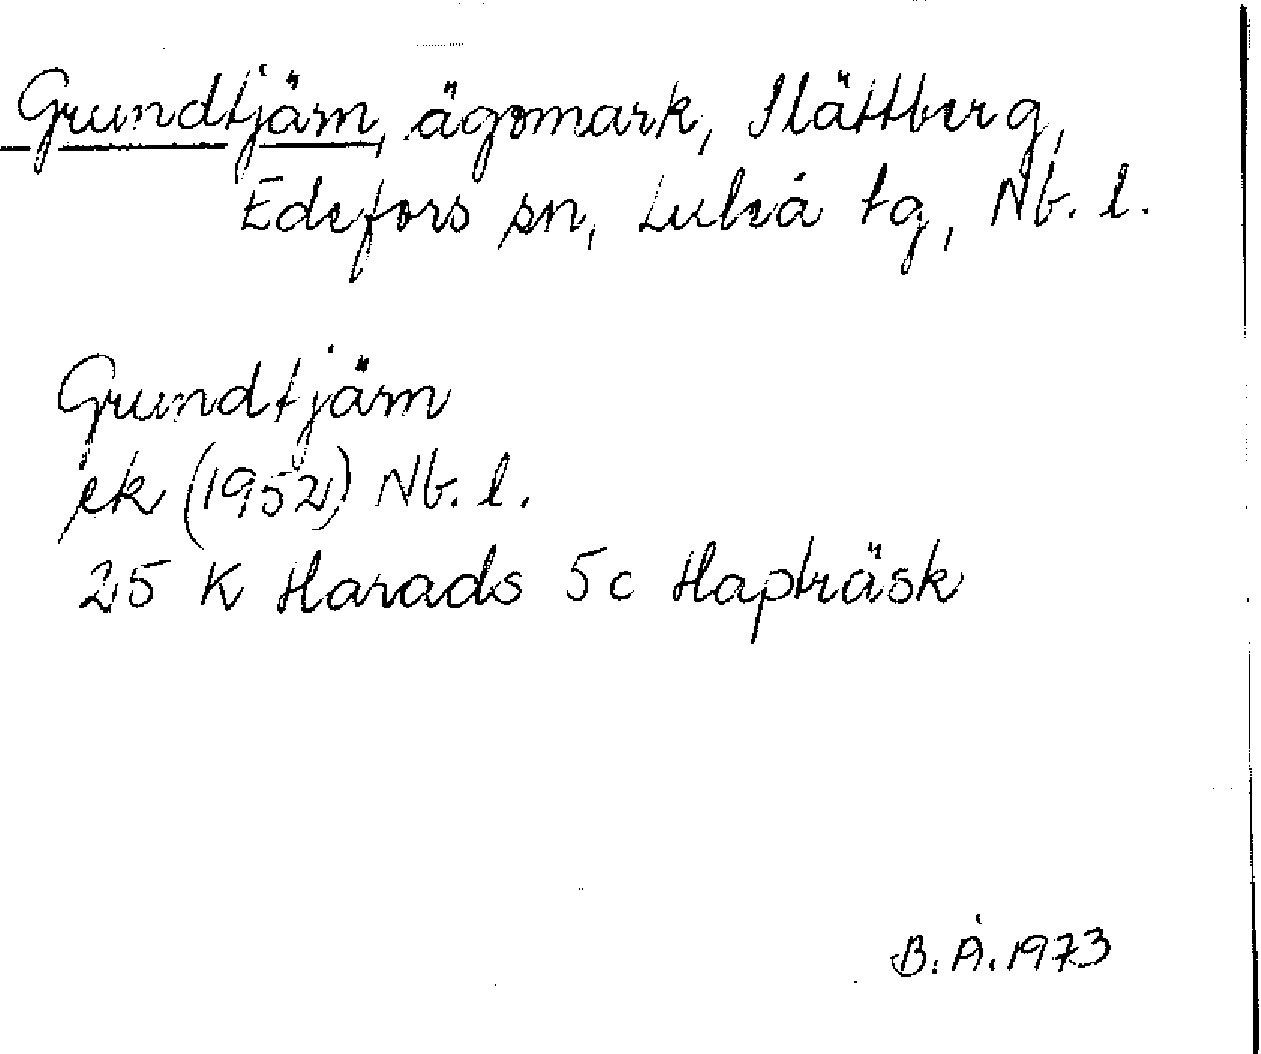 Grundtjärn, ägomark, Slättberg,
Edefors sn, Luleå tg, Nb. l.
Grundtjärn
ek (1952) Nb. l.
25 K Harads 5c Hapträsk
B. Å. 1973